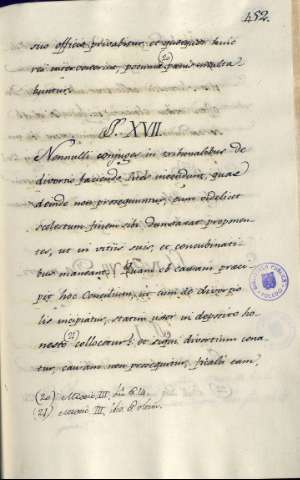 452.
suo officio privabitur, et quicumque huic
rei intervenerint, poenis (20)
buntur.
§. XVII.
Nonnulli conjuges in tribunalibus de
divortio faciendo litem incedunt, quas
deinde non prosequuntur, cum videlicet
scelestum finem sibi dumtaxat propone-
tes, ut in vitiis suis, et concubinati-
bus maneant. Quam ob causam praeci-
pit hoc Concilium, ut cum de divortio
lis incipiatur, statim uxor in deposito ho-
nesto (21) collocetur: et si qui divortium cona-
tur, causam non prosequitur, fiscalis eam,
(20) Mexic. III. lib. 4.
(21) Mexic. III.